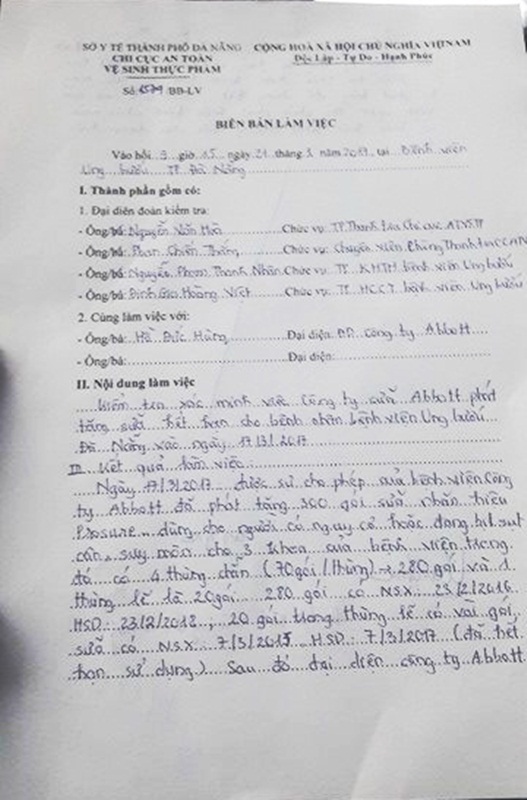 SỞ Y TẾ THÀNH PHỐ ĐÀ NẴNG CỘNG HOÀ XÃ HỘI CHỦ NGHĨA VIỆT NAM
CHI CỤC AN TOÀN Độc Lập - Tự Do - Hạnh Phúc
VỆ SINH THỰC PHẨM
Số: /BB-LV
BIÊN BẢN LÀM VIỆC
Vào hồi 9 giờ 15 ngày 21 tháng 3 năm 2017, tại Bệnh viện
Ung bướu TP Đà Nẵng
I. Thành phần gồm có:
1. Đại diện đoàn kiểm tra:
- Ông/bà: Nguyễn Văn Chức vụ: TP Thanh tra Chi cục ATVSTP
- Ông/bà: Phan Chiến Thắng Chức vụ: Chuyên viên Phòng Thanh tra CCATVSTP
- Ông/bà: Nguyễn Phạm Thanh Nhân Chức vụ: TP KHTH bệnh viện Ung bướu
- Ông/bà: Đinh Gia Hoàng Việt Chức vụ: TP HCCT bệnh viện Ung bướu
2. Cùng làm việc với:
- Ông/bà: Hồ Đức Hùng Đại diện: công ty Abbott
- Ông/bà: Đại diện:
II. Nội dung làm việc
Kiểm tra xác minh việc Công ty sữa Abbott phát
tặng sữa hết hạn cho bệnh nhân bệnh viện Ung bướu
Đà Nẵng vào ngày 17/3/2017
III. Kết quả làm việc:
Ngày 17/3/2017 được sự cho phép của bệnh viện Công
ty Abbott đã phát tặng 300 gói sữa nhãn hiệu
Prosure dùng cho người có nguy cơ hoặc đang bị sụt
cân, suy mòn cho 3 khoa của bệnh viện trong
đó có 4 thùng chẵn (70 gói/thùng) → 280 gói và 1
thùng lẻ là 20 gói 280 gói có NSX: 23/2/2016
HSD: 23/2/2018, 20 gói trong thùng lẻ có vài gói
sữa có NSX: 7/3/2015 HSD: 7/3/2017 (đã hết
hạn sử dụng). Sau đó đại diện công ty Abbott